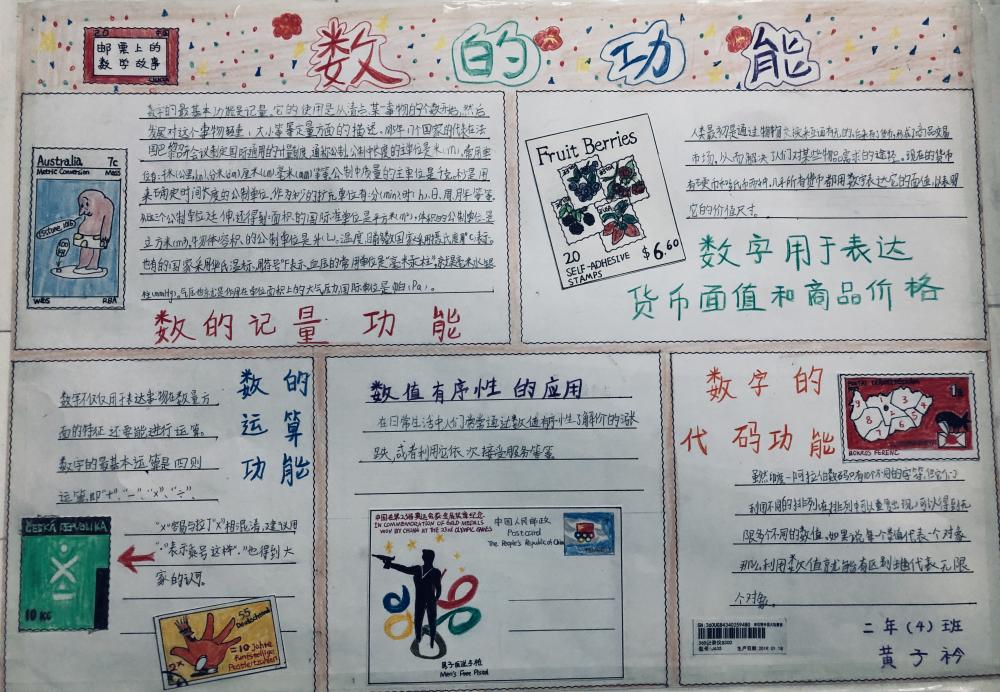 20 中国
邮票上的
数学故事
数的功能
数字的最基本功能是记量,它的使用是从清点某一事物的个数开始,然后
发展对这个事物轻重,大小等等定量方面的描述。
国巴黎 会议制定国际通用的计量制度,通称公制。公制中长度的主单位是米(m),常用单
位有:千米(公里km)分米(dm)厘米(cm)毫米(mm)等等。公制中质量的主要单位是千克。秒是用
来确定时间长度的公制单位。作为秒的扩充单位有:分(min)时(h)、日、周、月、年等等。
从这三个公制单位延伸,还得到:面积的国际标准单位是平方米(m²),体积的公制单位是
立方米(m³)。 体容积的公制单位是升(L)。温度,日前多数国家采用摄氏度用℃表示。
也有的国家采用华氏温标,用符号℉表示。血压的常用单位是“毫米汞柱”。
柱(mmHg)。气压 是作用在单位面积上的大气压力,国际单位是帕(Pa)。
Australia 7c
Metric Conversion Mass
15stone 10lb
100 kg
WBS RBA
数的记量功能
Fruit Berries
20
SELF-ADHESIVE
STAMPS
$6.60
人类最初是通过物物交换来互通有无的,后来有了货币,形成了商品交易
市场,从而解决了人们对某些物品需求的途径。现在的货币
有硬币和纸币两种,几乎所有货币都用数字表达它的面值,以表明
它的价值尺寸。
数字用于表达
货币面值和商品价格
数字不仅仅用于表达事物在数量方
面的特征,还要能进行运算。
数字的最基本运算是四则
运算,即“+”、“-”、“×”、“÷”。
数的
运算
功能
“×”容易与拉丁“X”相混淆,建议用
“·”表示乘号这样“·”也得到大
家的认可。
ČESKÁ REPUBLIKA
10 Kč
55
Deutschland
2×
=10 Jahre
fünfstellige
Postleitzahlen
数值有序性的应用
在日常生活中人们常常通过数值有序性了解价的涨
跌,或者利用它依次接受服务等等
中国在第23届奥运会获金质奖章纪念
IN COMMEMORATION OF GOLD MEDALS
WON BY CHINA AT THE 23rd OLYMPIC GAMES
中国人民邮政
Postcard
The People's Republic of China
男子自选手枪
Men's Free Pistol
数字的
代码功能
BOKROS FERENC
虽然印度—阿拉伯数码只有10个不同的字符,但它们
利用不同的排列,在排列中可以重复出现,可以得到无
限多个不同的数值,如果说每个数值代表一个对象
那么利用数值就能够有区别地代表无限
个对象。
二年(4)班
黄子衿